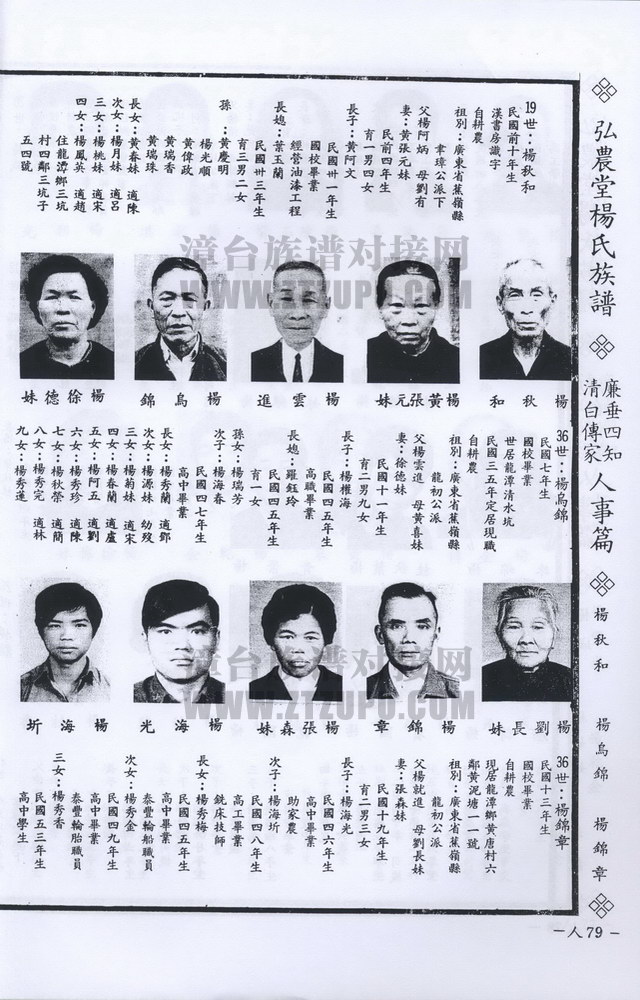 弘農堂楊氏族譜
廉垂四知
清白傳家
人事篇
楊秋和
楊烏錦
楊錦章
－人79－
19世：楊秋和
民國前十年生
漢書房識字
自耕農
祖別：廣東省蕉嶺縣
韋瑋公派下
父楊阿炳 母劉有
妻：黃張元妹
民前四年生
育一男四女
長子：黃阿文
民國卅一年生
國校畢業
經營油漆工程
長媳：葉玉蘭
民國卅三年生
育三男二女
孫：黃慶明
楊光順
黃偉政
黃瑞香
黃瑞珠
長女：黃春妹 適陳
次女：楊月妹 適呂
三女：楊桃妹 適宋
四女：楊鳳英 適趙
住龍潭鄉三坑
村四鄰三坑子
五四號
楊秋和
楊黃張元妹
楊雲進
楊烏錦
楊徐德妹
漳台族谱对接网
WWW.ZTZUPU.COM
36世：楊烏錦
民國七年生
國校畢業
世居龍潭清水坑
民國三五年定居現職
自耕農
祖別：廣東省蕉嶺縣
龍初公派
父楊雲進 母黃喜妹
妻：徐德妹
民國十一年生
育二男九女
長子：楊權海
民國四五年生
高職畢業
長媳：羅鈺玲
民國四五年生
育一女
孫女：楊瑞芳
次子：楊海春
民國四七年生
高中畢業
長女：楊秀蘭 適鄧
次女：楊源妹 幼歿
三女：楊菊妹 適宋
四女：楊春蘭 適盧
五女：楊阿五 適劉
六女：楊秀珍 適陳
七女：楊秋榮 適簡
八女：楊秀完 適林
九女：楊秀蓮
楊劉長妹
楊錦章
楊張森妹
楊海光
楊海圻
漳台族谱对接网
WWW.ZTZUPU.COM
36世：楊錦章
民國十三年生
國校畢業
自耕農
現居龍潭鄉黃唐村六
鄰黃泥塘一一號
祖別：廣東省蕉嶺縣
龍初公派
父楊就進 母劉長妹
妻：張森妹
民國十九年生
育二男三女
長子：楊海光
民國四六年生
高中畢業
助家農
次子：楊海圻
民國四八年生
高工畢業
銑床技師
長女：楊秀梅
民國四五年生
高中畢業
泰豐輪船職員
次女：楊秀金
民國四九年生
高中畢業
泰豐輪胎職員
三女：楊秀香
民國五三年生
高中學生